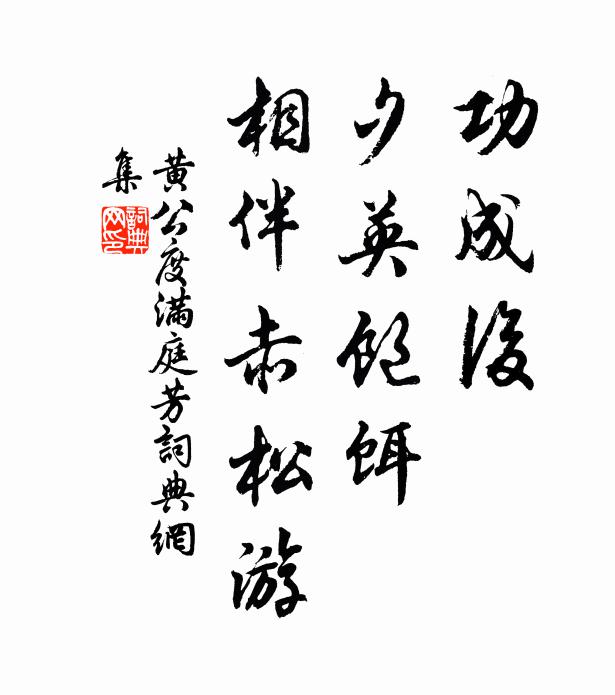 功成後
夕英飽餌
相伴赤松游
黄公度滿庭芳詞典網
集
詞典网印